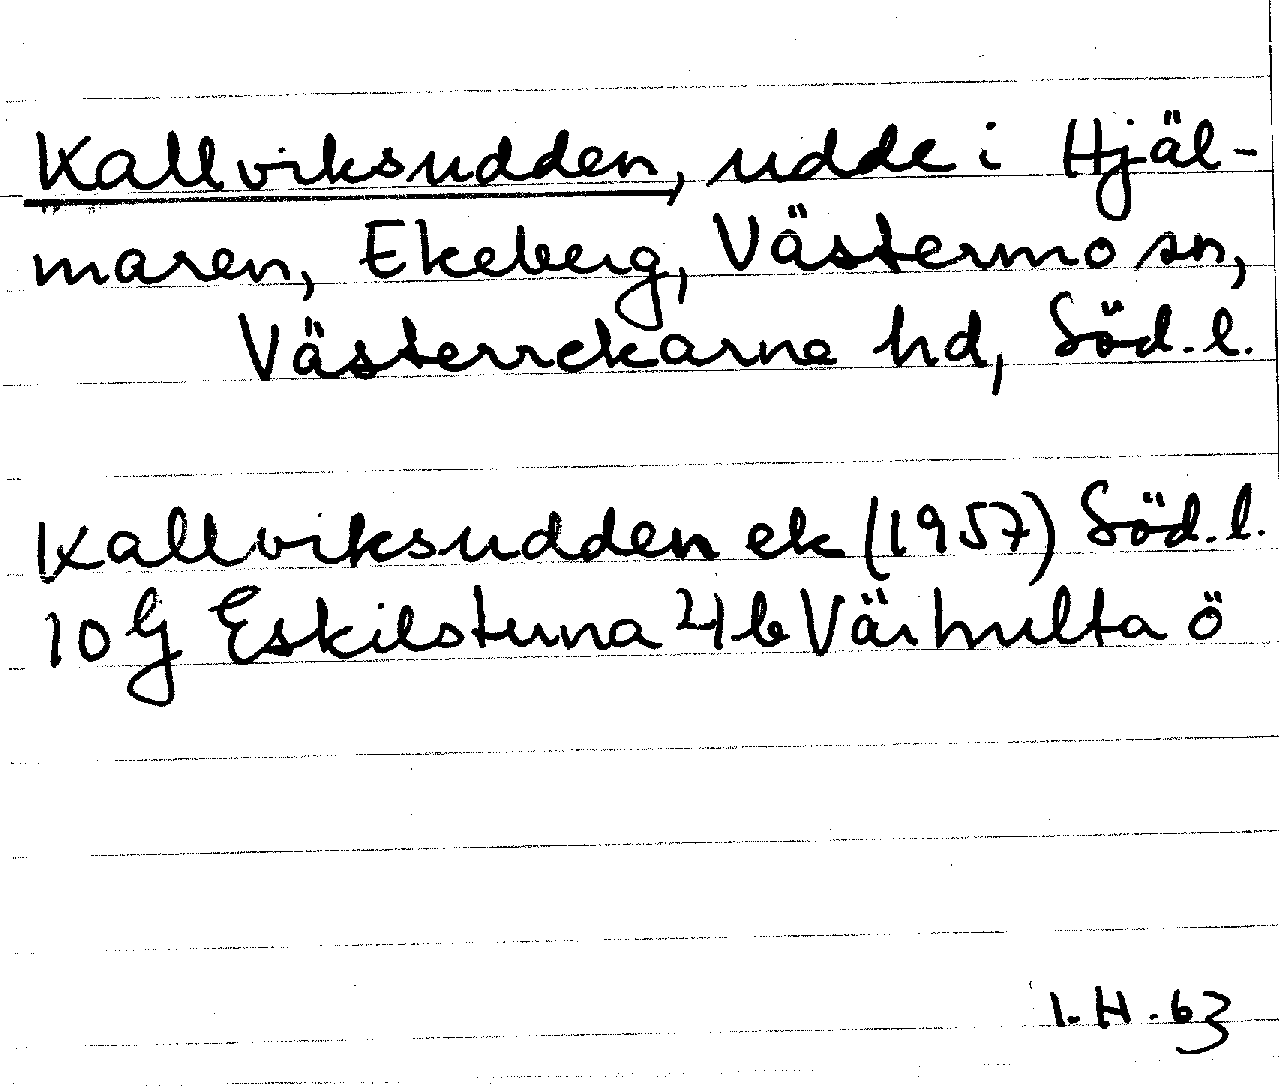 Kallviksudden, udde i Hjäl-
maren, Ekeberg, Västermo sn,
Västerrekarne hd, Söd. l.
Kallviksudden ek (1957) Söd. l.
10 G Eskilstuna 4 b Värhulta ö
I. H. 63